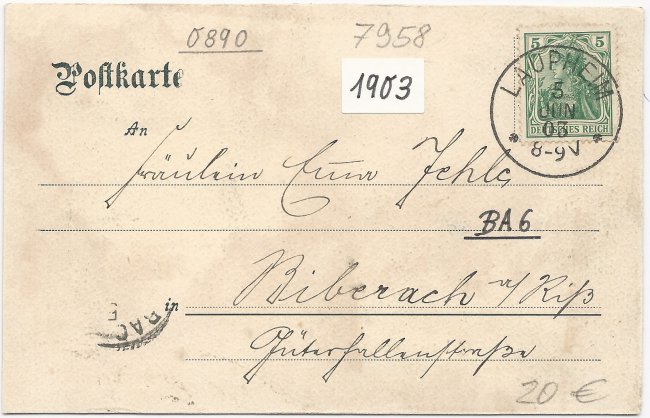 0890
7958
5 5
DEUTSCHES REICH
LAUPHEIM
5
JUN
03
8-9V
Postkarte
1903
An
Fräulein Emma Jehle
BA6
Biberach a/Riß
in
Güterhallenstraße
RAC
20 €